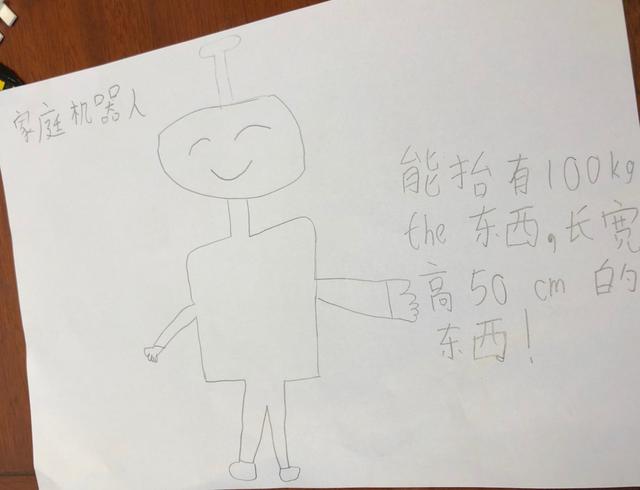 家庭机器人
能抬有100kg
the 东西,长宽
高50 cm 的
东西!